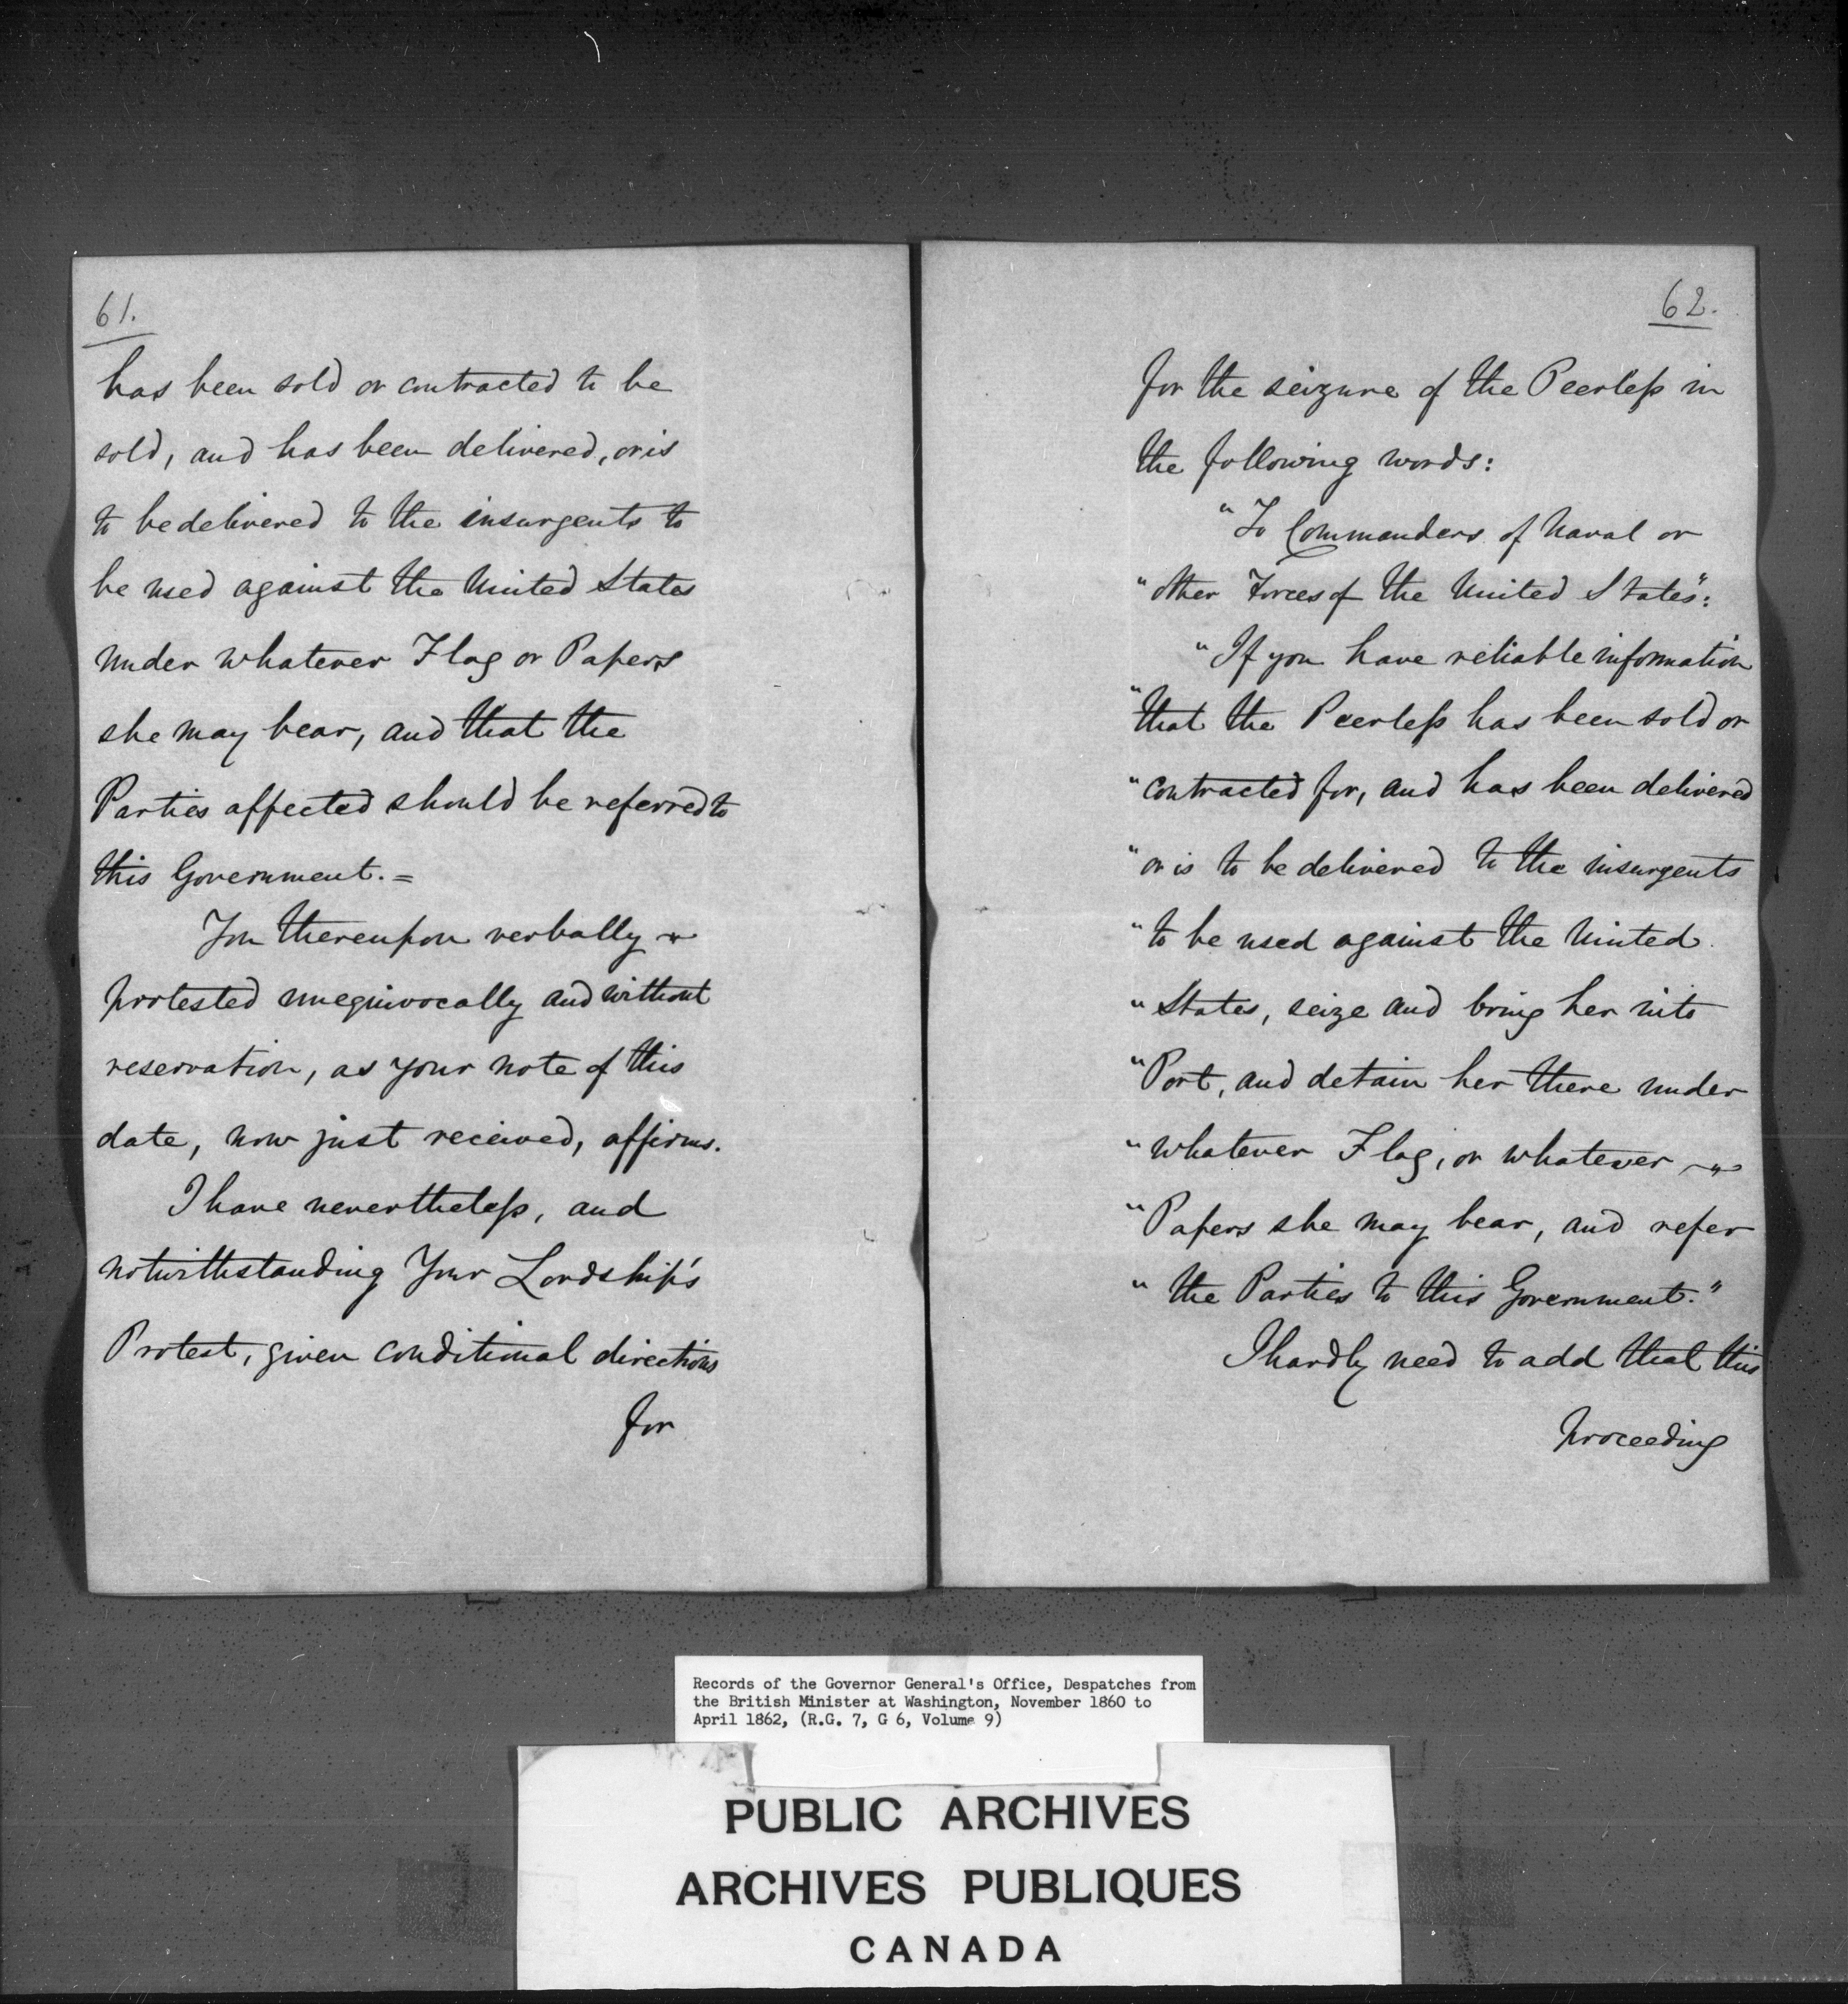 61.
has been sold or contracted to be
sold, and has been delivered, or is
to be delivered to the insurgents to
be used against the United States
under whatever Flag or Papers
she may bear, and that the
Parties affected should be referred to
this Government. =
You thereupon verbally
protested unequivocally and without
reservation, as your note of this
date, now just received, affirms.
I have nevertheless, and
notwithstanding Your Lordship's
Protest, given conditional directions
for
62.
for the seizure of the Peerless in
the following words:
"To Commanders of Naval or
"other Forces of the United States":
"If you have reliable information
"that the Peerless has been sold or
"contracted for, and has been delivered
"or is to be delivered to the insurgents
"to be used against the United
"States, seize and bring her into
"Port, and detain her there under
"whatever Flag, or whatever
"Papers she may bear, and refer
"the Parties to this Government."
I hardly need to add that this
proceeding
Records of the Governor General's Office, Despatches from
the British Minister at Washington, November 1860 to
April 1862, (R.G. 7, G 6, Volume 9)
PUBLIC ARCHIVES
ARCHIVES PUBLIQUES
CANADA